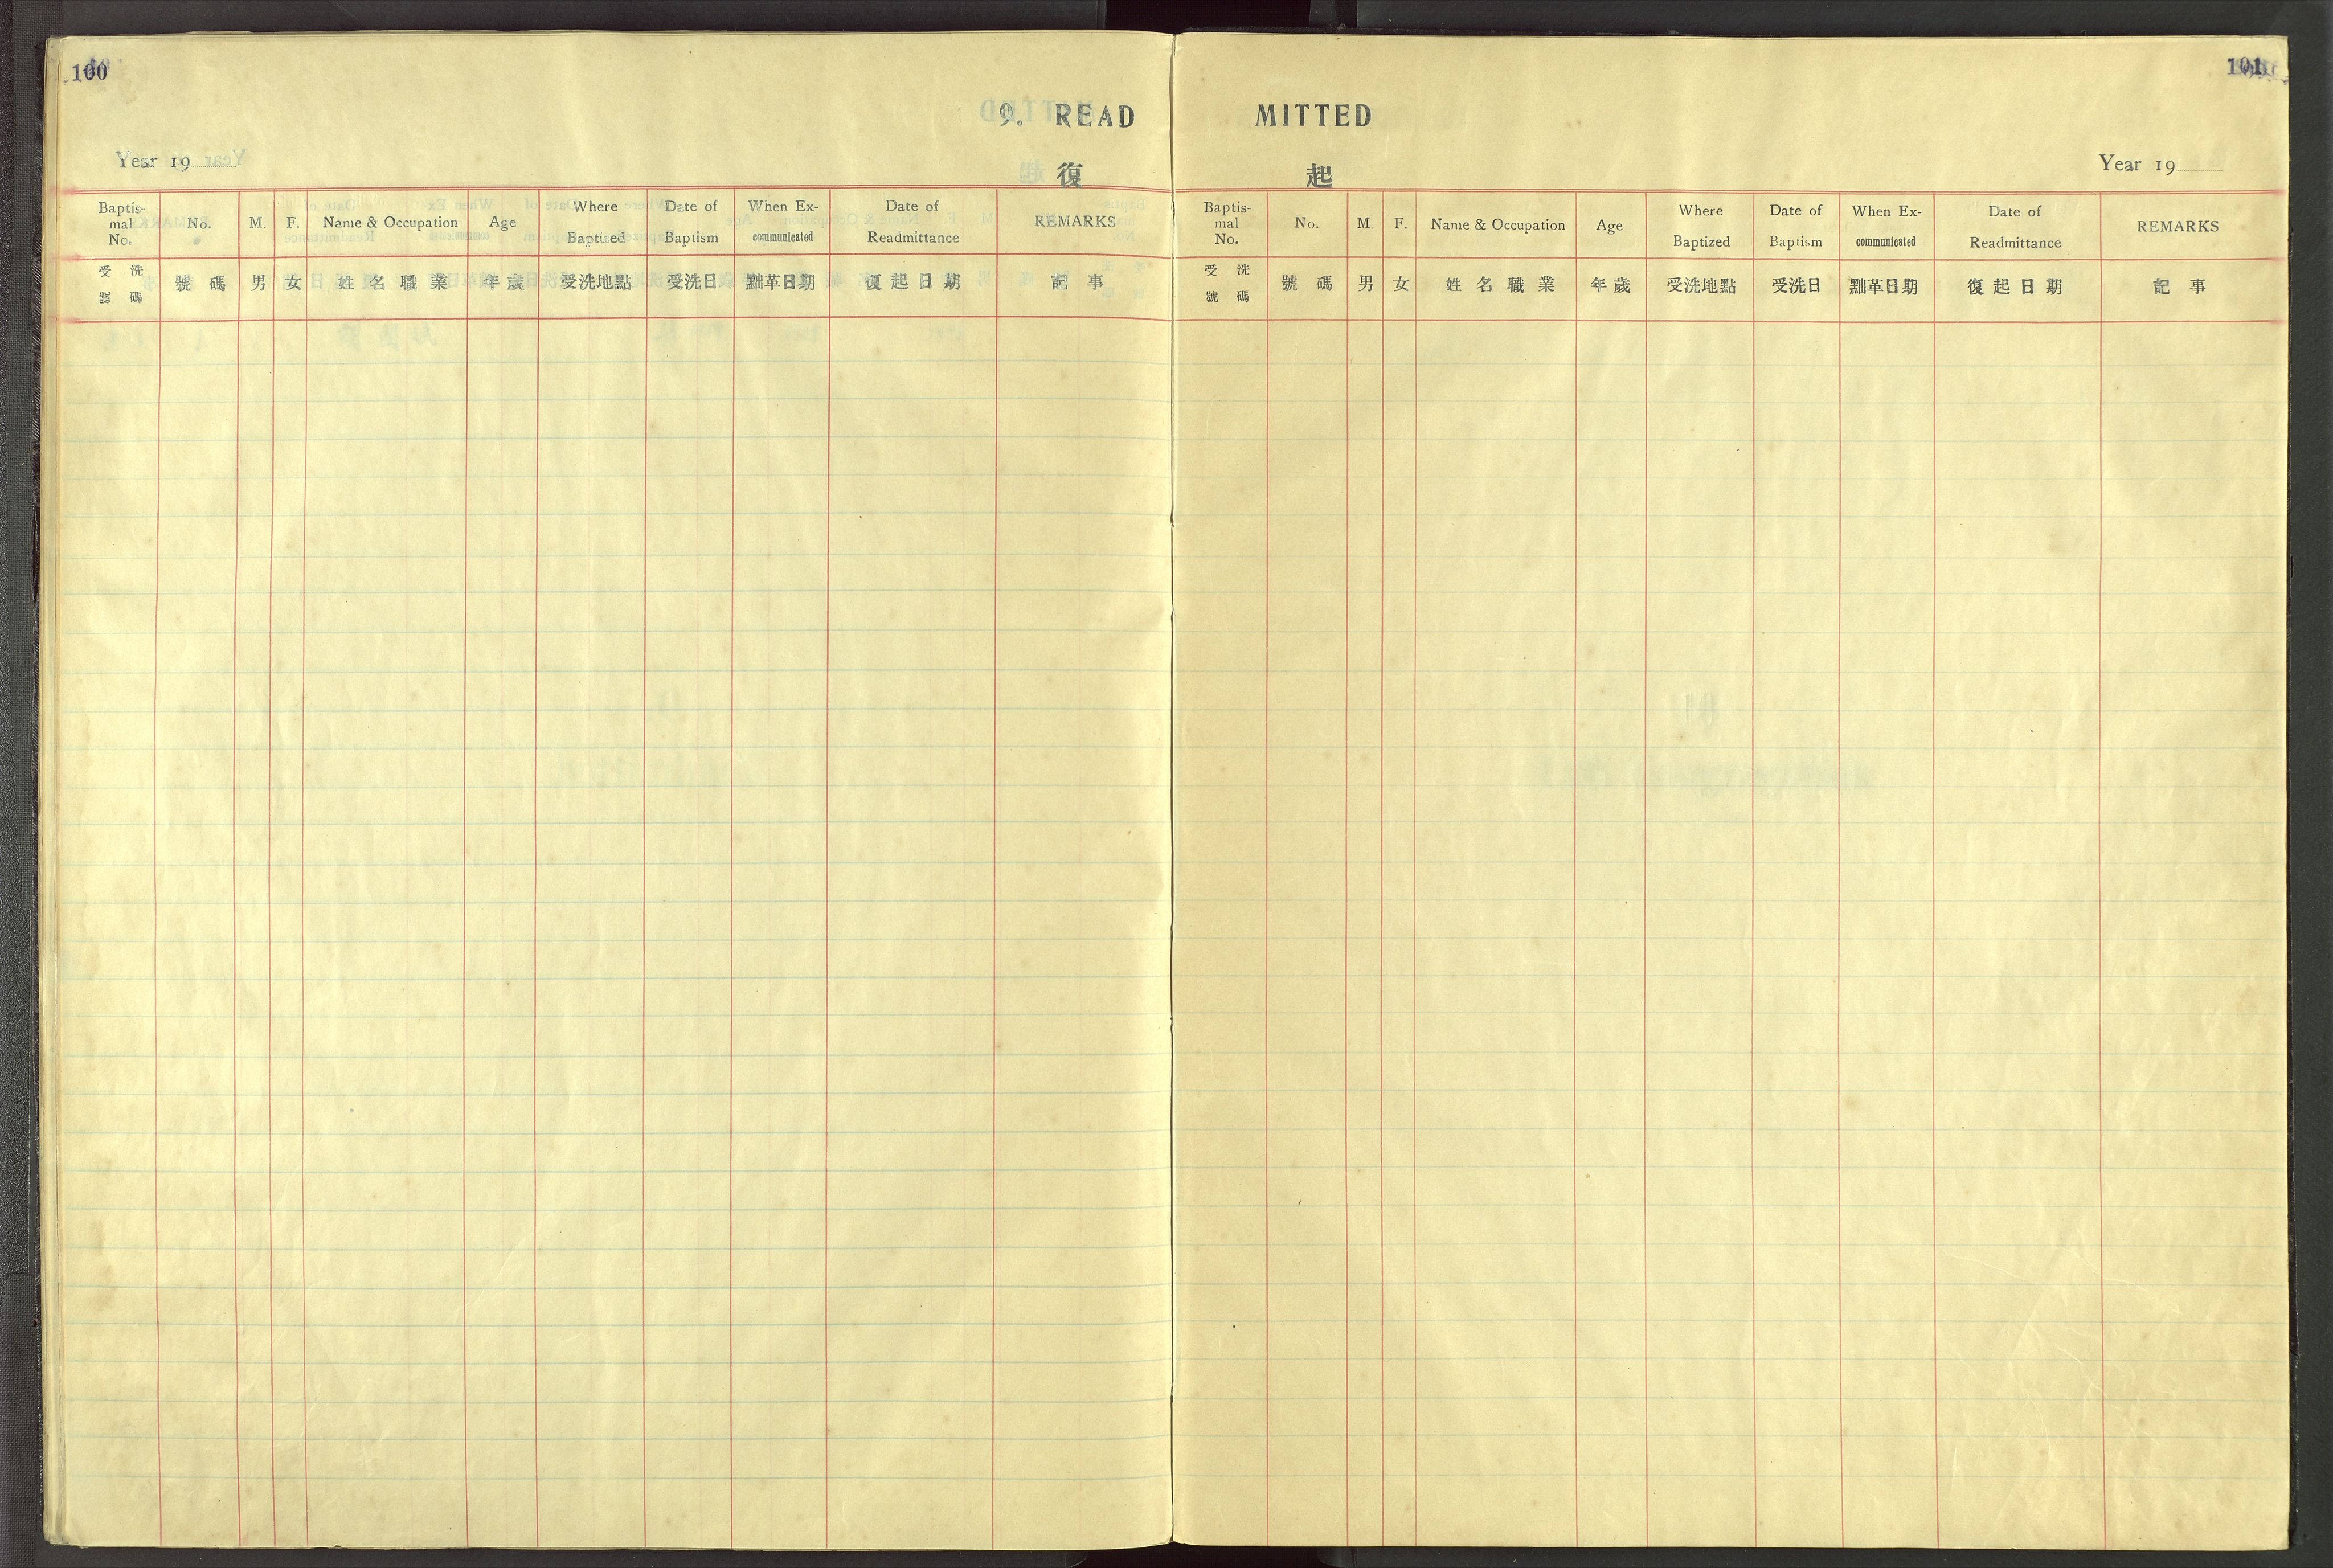 100
9. READ
Year 19
復
Baptis-mal No. No. M. F. Name & Occupation Age Where Baptized Date of Baptism When Ex-communicated Date of Readmittance REMARKS
受洗號碼 號碼 男 女 姓名職業 年歲 受洗地點 受洗日 黜革日期 復起日期 記事
101
MITTED
起
Year 19
Baptis-mal No. No. M. F. Name & Occupation Age Where Baptized Date of Baptism When Ex-communicated Date of Readmittance REMARKS
受洗號碼 號碼 男 女 姓名職業 年歲 受洗地點 受洗日 黜革日期 復起日期 記事